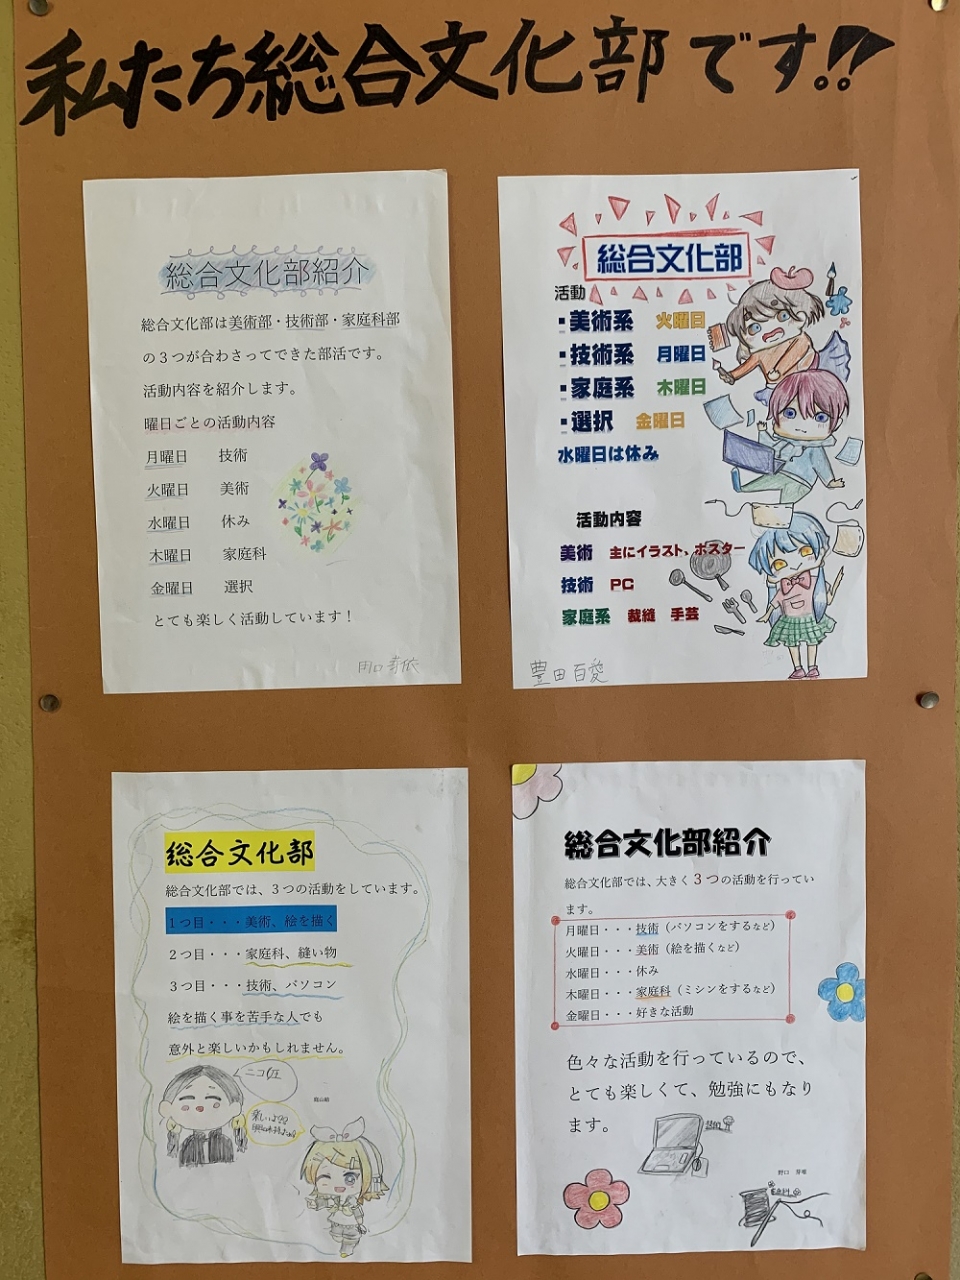 私たち総合文化部です!!
総合文化部紹介
総合文化部は美術部・技術部・家庭科部
の３つが合わさってできた部活です。
活動内容を紹介します。
曜日ごとの活動内容
月曜日 技術
火曜日 美術
水曜日 休み
木曜日 家庭科
金曜日 選択
とても楽しく活動しています！
総合文化部
活動
・美術系 火曜日
・技術系 月曜日
・家庭系 木曜日
・選択 金曜日
水曜日は休み
活動内容
美術 主にイラスト、ポスター
技術 PC
家庭系 裁縫 手芸
豊田百愛
総合文化部
総合文化部では、３つの活動をしています。
１つ目・・・美術、絵を描く
２つ目・・・家庭科、縫い物
３つ目・・・技術、パソコン
絵を描く事を苦手な人でも
意外と楽しいかもしれません。
ニコリ
楽しいよ
総合文化部紹介
総合文化部では、大きく３つの活動を行ってい
ます。
月曜日・・・技術（パソコンをするなど）
火曜日・・・美術（絵を描くなど）
水曜日・・・休み
木曜日・・・家庭科（ミシンをするなど）
金曜日・・・好きな活動
色々な活動を行っているので、
とても楽しくて、勉強にもなり
ます。